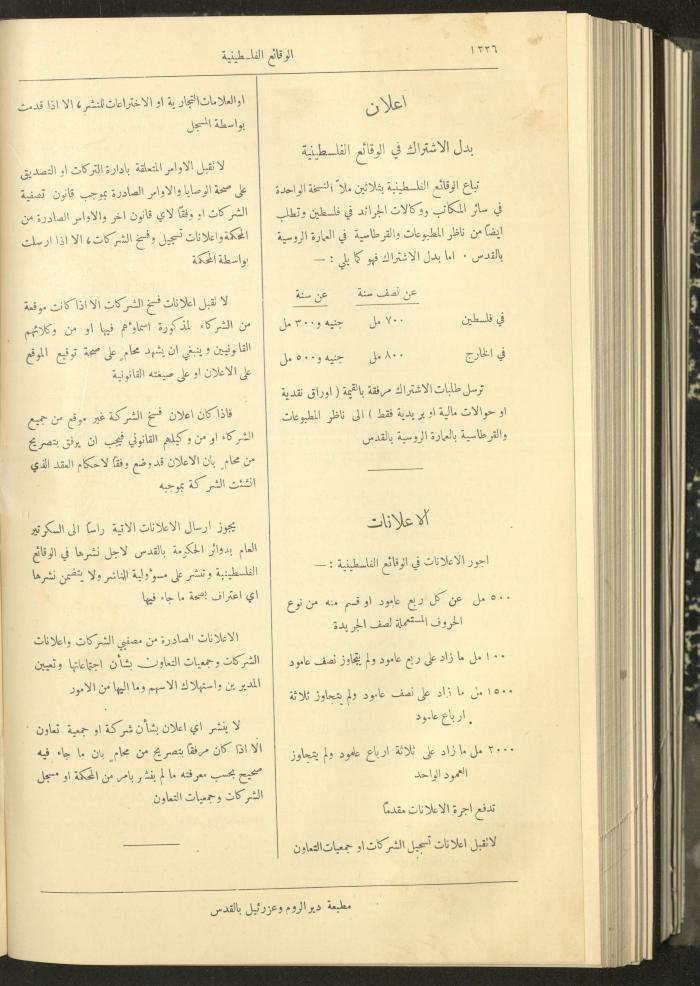 ١٣٣٦
الوقائع الفلسطينية
اعلان
بدل الاشتراك في الوقائع الفلسطينية
تباع الوقائع الفلسطينية بثلاثين ملاً النسخة الواحدة
في سائر المكاتب ووكالات الجرائد في فلسطين وتطلب
ايضاً من ناظر المطبوعات والقرطاسية في العمارة الروسية
بالقدس ٠ اما بدل الاشتراك فهو كما يلي : —
عن نصف سنة عن سنة
في فلسطين ٧٠٠ مل جنيه و٣٠٠ مل
في الخارج ٨٠٠ مل جنيه و٥٠٠ مل
ترسل طلبات الاشتراك مرفقة بالقيمة ( اوراق نقدية
او حوالات مالية او بريدية فقط ) الى ناظر المطبوعات
والقرطاسية بالعمارة الروسية بالقدس
الاعلانات
اجور الاعلانات في الوقائع الفلسطينية : —
٥٠٠ مل عن كل ربع عامود او قسم منه من نوع
الحروف المستعملة لصف الجريدة
١٠٠ مل ما زاد على ربع عامود ولم يتجاوز نصف عامود
١٥٠٠ مل ما زاد على نصف عامود ولم يتجاوز ثلاثة
ارباع عامود
٢٠٠٠ مل ما زاد على ثلاثة ارباع عامود ولم يتجاوز
العمود الواحد
تدفع اجرة الاعلانات مقدماً
لا تقبل اعلانات تسجيل الشركات او جمعيات التعاون
او العلامات التجارية او الاختراعات للنشر، الا اذا قدمت
بواسطة المسجل
لا تقبل الاوامر المتعلقة بادارة التركات او التصديق
على صحة الوصايا والاوامر الصادرة بموجب قانون تصفية
الشركات او وفقاً لاي قانون اخر والاوامر الصادرة من
المحكمة واعلانات تسجيل وفسخ الشركات، الا اذا ارسلت
بواسطة المحكمة
لا تقبل اعلانات فسخ الشركات الا اذا كانت موقعة
من الشركاء لمذكورة اسماؤهم فيها او من وكلائهم
القانونيين وينبغي ان يشهد محام على صحة توقيع الموقع
على الاعلان او على صيغته القانونية
فاذا كان اعلان فسخ الشركة غير موقع من جميع
الشركاء او من وكيلهم القانوني فيجب ان يرفق بتصريح
من محام بان الاعلان قد وضع وفقاً لاحكام العقد الذي
انشئت الشركة بموجبه
يجوز ارسال الاعلانات الاتية راساً الى السكرتير
العام بدوائر الحكومة بالقدس لاجل نشرها في الوقائع
الفلسطينية وتنشر على مسؤولية الناشر ولا يتضمن نشرها
اي اعتراف بصحة ما جاء فيها
الاعلانات الصادرة من مصفيي الشركات واعلانات
الشركات وجمعيات التعاون بشأن اجتماعاتها وتعيين
المديرين واستهلاك الاسهم وما اليها من الامور
لا ينشر اي اعلان بشأن شركة او جمعية تعاون
الا اذا كان مرفقاً بتصريح من محام بان ما جاء فيه
صحيح بحسب معرفته ما لم ينشر بامر من المحكمة او مسجل
الشركات وجمعيات التعاون
مطبعة دير الروم وعزرئيل بالقدس